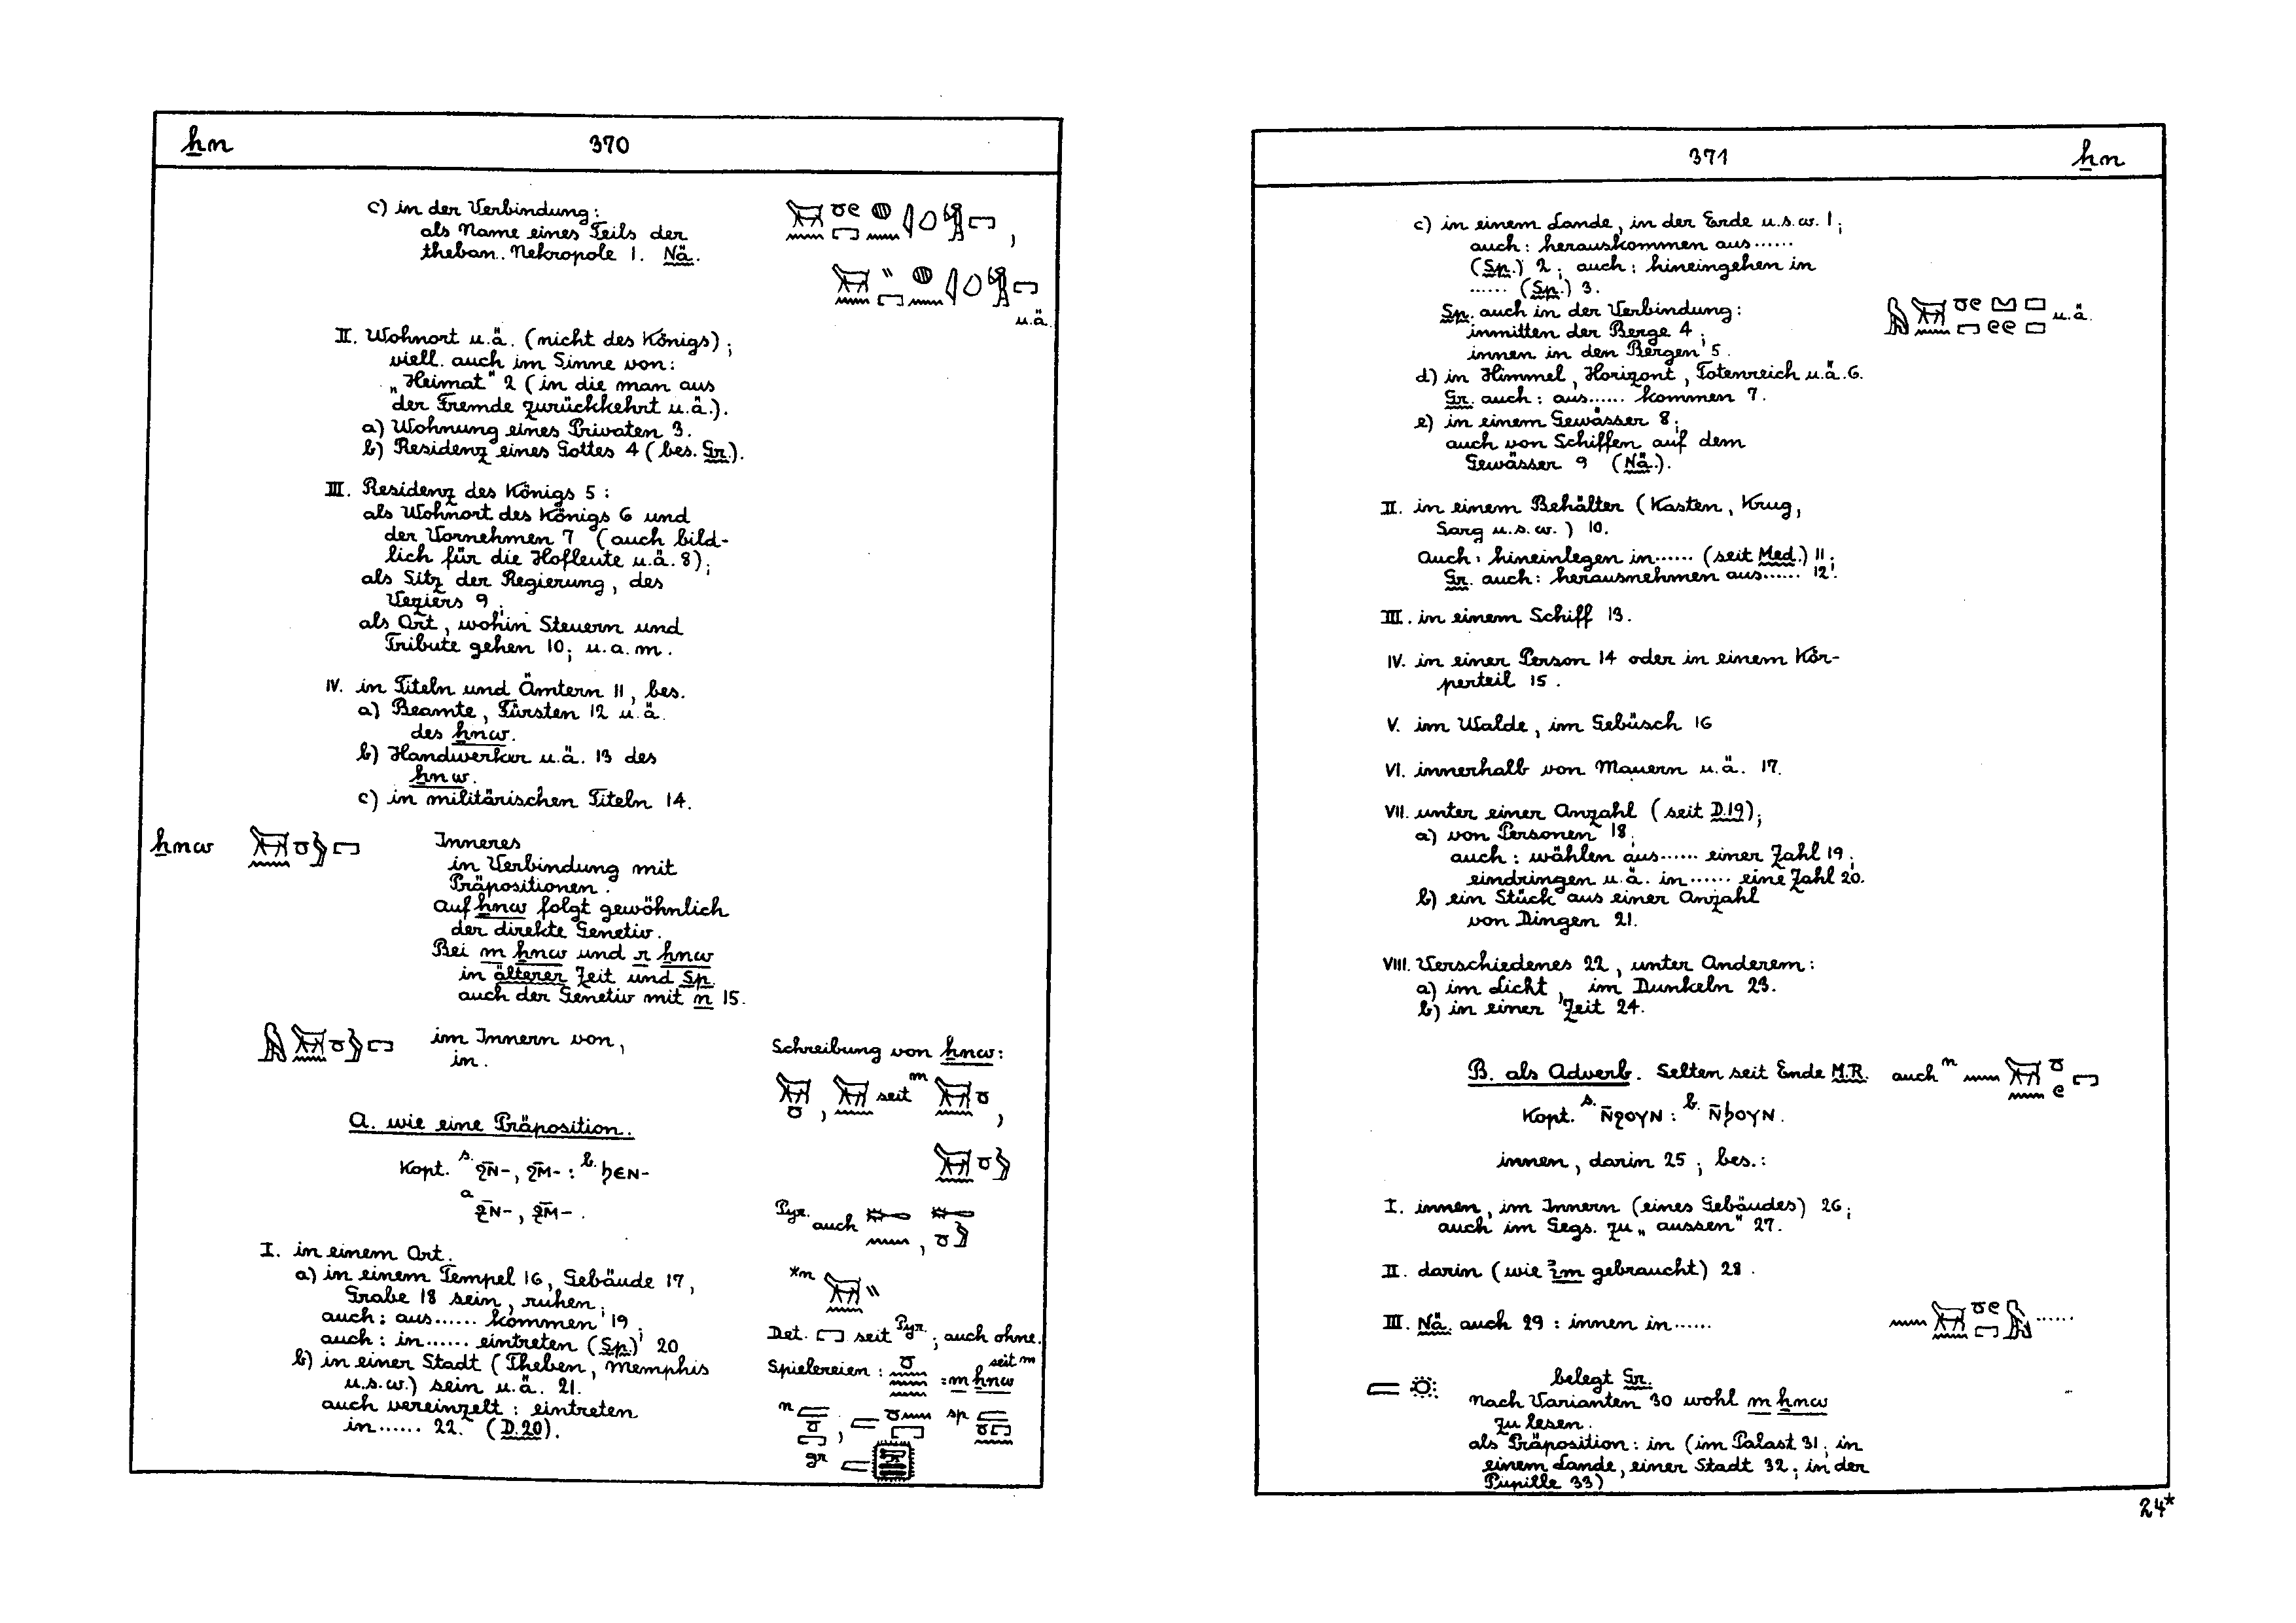 ẖn 370
c) in der Verbindung:
als Name eines Teils der
theban. Nekropole 1. Nä.
u.ä.
II. Wohnort u.ä. (nicht des Königs);
viell. auch im Sinne von:
„Heimat" 2 (in die man aus
der Fremde zurückkehrt u.ä.).
a) Wohnung eines Privaten 3.
b) Residenz eines Gottes 4 (bes. Gr.).
III. Residenz des Königs 5:
als Wohnort des Königs 6 und
der Vornehmen 7 (auch bild-
lich für die Hofleute u.ä. 8);
als Sitz der Regierung, des
Veziers 9;
als Ort, wohin Steuern und
Tribute gehen 10; u.a.m.
IV. in Titeln und Ämtern 11, bes.
a) Beamte, Fürsten 12 u.ä.
des ẖnw.
b) Handwerker u.ä. 13 des
ẖnw.
c) in militärischen Titeln 14.
ẖnw Inneres
in Verbindung mit
Präpositionen.
Auf ẖnw folgt gewöhnlich
der direkte Genetiv.
Bei m ẖnw und r ẖnw
in älterer Zeit und Sp.
auch der Genetiv mit n 15.
im Innern von,
in.
A. wie eine Präposition.
Kopt. s. ϩN̄-, ϩM̄- : b. ϧЄN-
a ⳉN̄-, ⳉM̄-.
I. in einem Ort.
a) in einem Tempel 16, Gebäude 17,
Grabe 18 sein, ruhen;
auch: aus...... kommen 19;
auch: in...... eintreten (Sp.) 20
b) in einer Stadt (Theben, Memphis
u.s.w.) sein u.ä. 21.
auch vereinzelt: eintreten
in...... 22. (D.20).
Schreibung von ẖnw:
, seit m ,
Pyr. auch ,
*m
Det. seit Pyr.; auch ohne.
Spielereien: = m ẖnw seit m
n , sp
gr
371 ẖn
c) in einem Lande, in der Erde u.s.w. 1;
auch: herauskommen aus......
(Sp.) 2; auch: hineingehen in
...... (Sp.) 3.
Sp. auch in der Verbindung: u.ä.
inmitten der Berge 4;
innen in den Bergen 5.
d) in Himmel, Horizont, Totenreich u.ä. 6.
Gr. auch: aus...... kommen 7.
e) in einem Gewässer 8;
auch von Schiffen auf dem
Gewässer 9 (Nä.).
II. in einem Behälter (Kasten, Krug,
Sarg u.s.w.) 10.
Auch: hineinlegen in...... (seit Med.) 11;
Gr. auch: herausnehmen aus...... 12.
III. in einem Schiff 13.
IV. in einer Person 14 oder in einem Kör-
perteil 15.
V. im Walde, im Gebüsch 16
VI. innerhalb von Mauern u.ä. 17.
VII. unter einer Anzahl (seit D.19);
a) von Personen 18;
auch: wählen aus...... einer Zahl 19;
eindringen u.ä. in...... eine Zahl 20.
b) ein Stück aus einer Anzahl
von Dingen 21.
VIII. Verschiedenes 22, unter Anderem:
a) im Licht, im Dunkeln 23.
b) in einer Zeit 24.
B. als Adverb. Selten seit Ende M.R. auch n
Kopt. s. N̄ϩOYN : b. N̄ϧOYN.
innen, darin 25; bes.:
I. innen, im Innern (eines Gebäudes) 26;
auch im Gegs. zu „aussen" 27.
II. darin (wie ỉm gebraucht) 28.
III. Nä. auch 29: innen in...... ......
belegt Gr.
nach Varianten 30 wohl m ẖnw
zu lesen.
als Präposition: in (im Palast 31; in
einem Lande, einer Stadt 32; in der
Pupille 33)
24*